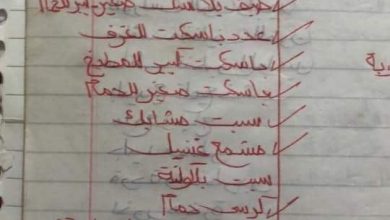 عدد باسكت للغرف
باسكت كبير للمطبخ
باسكت صغير للحمام
سبت مشابك
مشمع غسيل
سبت بالطية
كرسي حمام